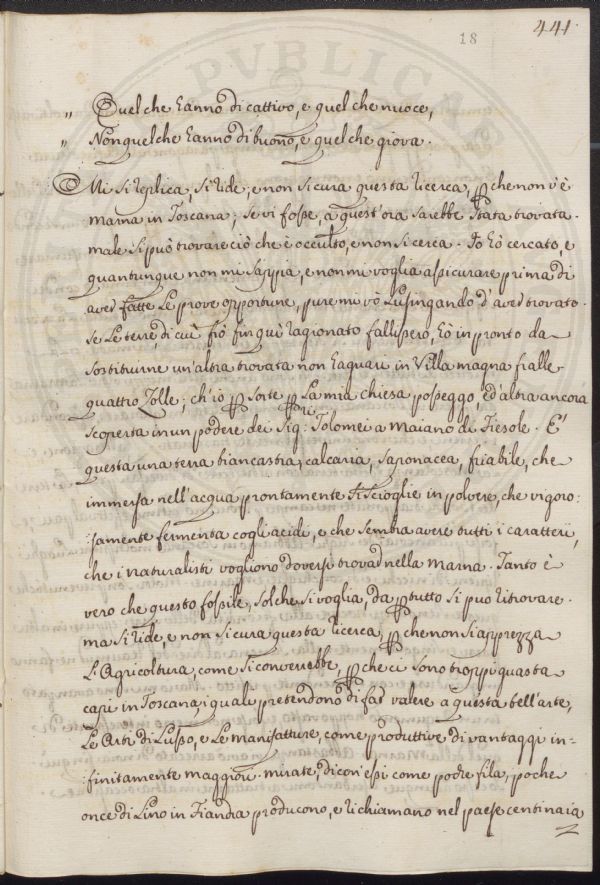 441.
18
„ Quel che hanno di cattivo, e quel che nuoce,
„ Non quel che hanno di buono, e quel che giova.
Mi si replica, si ride, e non si cura questa ricerca, p che non v'è
marna in Toscana; se vi fosse, a quest'ora sarebbe stata trovata.
male si può trovare ciò che è occulto, e non si cerca. Io hò cercato, e
quantunque non mi sappia, e non mi voglia assicurare prima di
aver fatte le prove opportune, pure mi vò lusingando d'aver trovato.
se le terre, di cui hò fin quì ragionato fallissero, hò in pronto da
sostituirne un'altra trovata non ha guari in Villa magna fralle
quattro Zolle, ch'io p sorte p la mia chiesa posseggo, ed'altra ancora
scoperta in un podere dei Sig:ri Tolomei a Maiano di Fiesole. E'
questa una terra biancastra, calcaria, saponacea, friabile, che
immersa nell'acqua prontamente si scioglie in polvere, che vigoro:
:samente fermenta cogli acidi, e che sembra avere tutti i caratteri,
che i naturalisti vogliono doversi trovar nella marna. Tanto è
vero che questo fossile, sol che si voglia, da p tutto si può ritrovare.
ma si ride, e non si cura questa ricerca, p che non si apprezza
l'Agricoltura, come si converrebbe, p che ci sono troppi guasta
casi in Toscana, i quali pretendono di far valere a questa bell'arte,
le Arti di Lusso, e le manifatture, come produttive di vantaggi in-
:finitamente maggiori. mirate, dicon essi come poche fila, poche
once di Lino in Fiandra producono, e richiamano nel paese centinaia